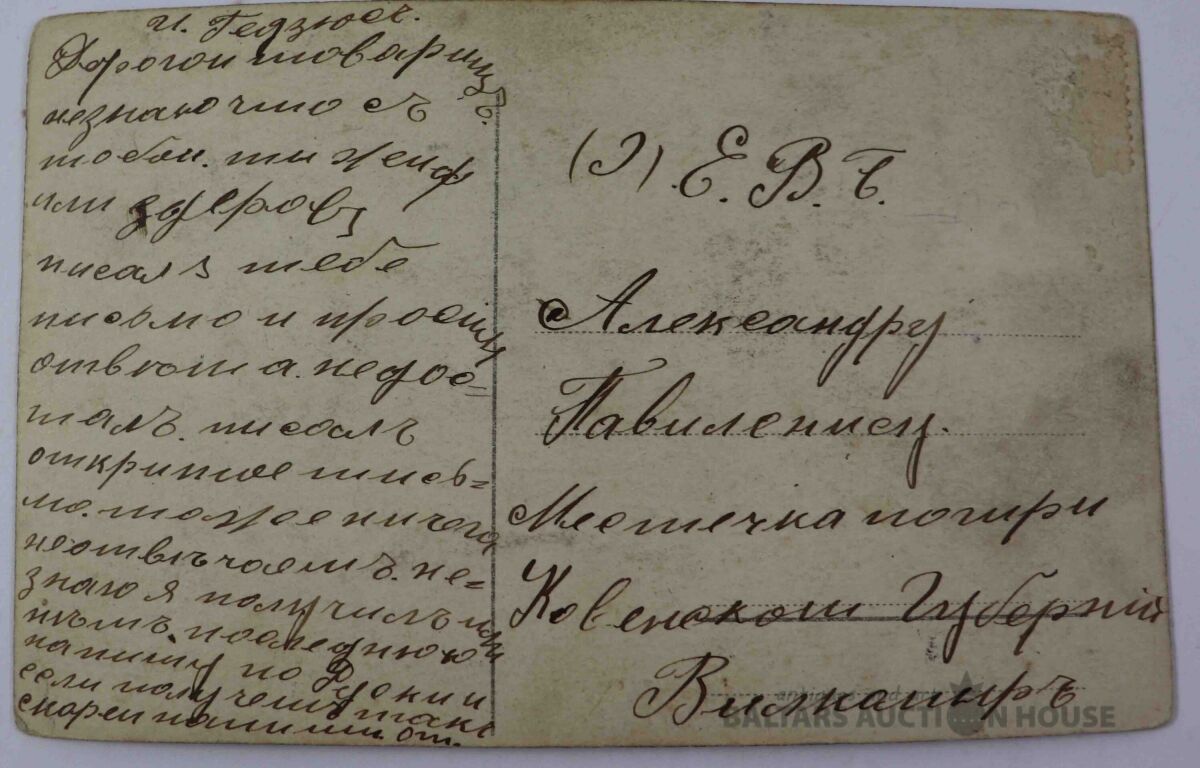 И. Гедзюсъ.
Дорогой товарищъ.
незнаю что съ
тобой. ты жени
или здеровъ
писалъ тебе
письмо и прошу
отвюта. недос=
талъ. писалъ
откритое письь=
мо. тоже ничего
неотвъчаетъ. не=
знаю я получилъ или
нътъ. последнюю
напишу по Руски и
если получешъ такъ
скореи напиши. от.
(Э) Е. В. Б.
Александру
Павиленису.
Местечка погири
Ковенской Губерній
Вилкамиръ
BALTARS AUCTION HOUSE